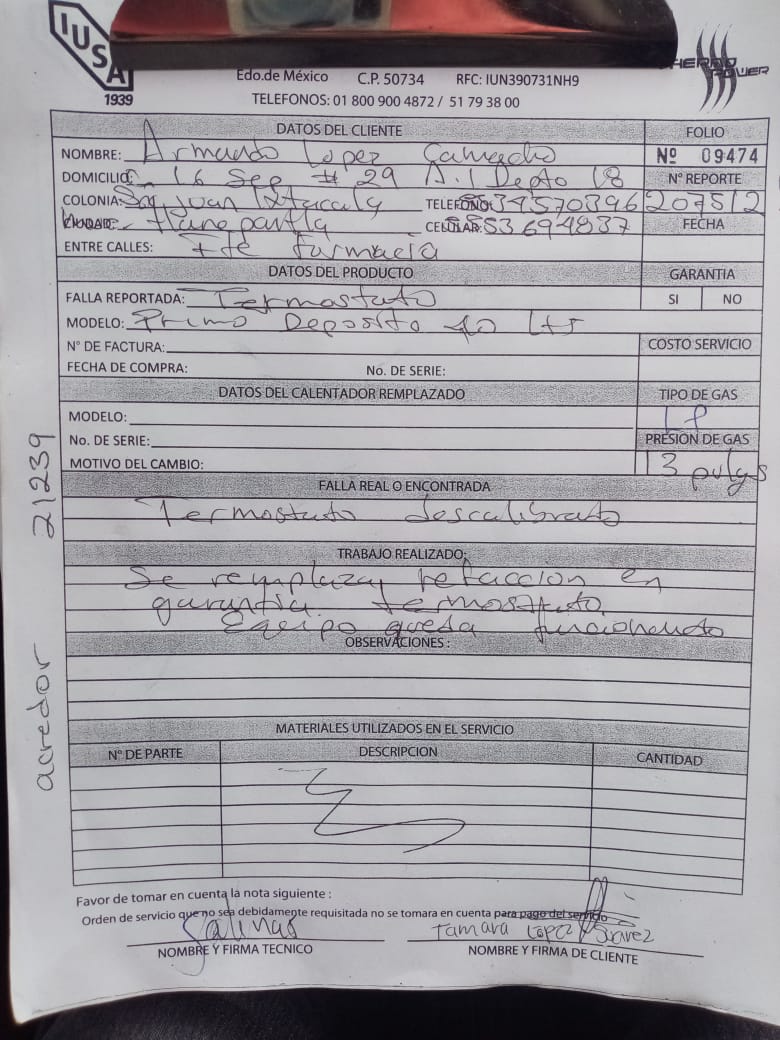 IUSA
1939
THERMO POWER
Edo.de México C.P. 50734 RFC: IUN390731NH9
TELEFONOS: 01 800 900 4872 / 51 79 38 00
DATOS DEL CLIENTE
FOLIO
NOMBRE: Armando Lopez Camacho
Nº 09474
DOMICILIO: 16 Sep # 29 A.1 Depto 18
Nº REPORTE
COLONIA: San Juan Ixtacala TELEFONO: 5534570396
207512
CIUDAD: Tlanepantla CELULAR: 5553694837
FECHA
ENTRE CALLES: Fte farmacia
DATOS DEL PRODUCTO
GARANTIA
FALLA REPORTADA: Termostato
SI NO
MODELO: Primo Deposito 40 Lts
N° DE FACTURA:
COSTO SERVICIO
FECHA DE COMPRA: No. DE SERIE:
DATOS DEL CALENTADOR REMPLAZADO
TIPO DE GAS
MODELO:
LP
No. DE SERIE:
PRESION DE GAS
MOTIVO DEL CAMBIO:
13 pulgs
FALLA REAL O ENCONTRADA
Termostato descalibrato
TRABAJO REALIZADO:
Se remplaza, refaccion en
garantia. termostato.
Equipo queda funcionando
OBSERVACIONES :
MATERIALES UTILIZADOS EN EL SERVICIO
N° DE PARTE DESCRIPCION CANTIDAD
Favor de tomar en cuenta la nota siguiente :
Orden de servicio que no sea debidamente requisitada no se tomara en cuenta para pago del servicio
Salinas
Tamara Lopez Suarez
NOMBRE Y FIRMA TECNICO
NOMBRE Y FIRMA DE CLIENTE
acredor 21239